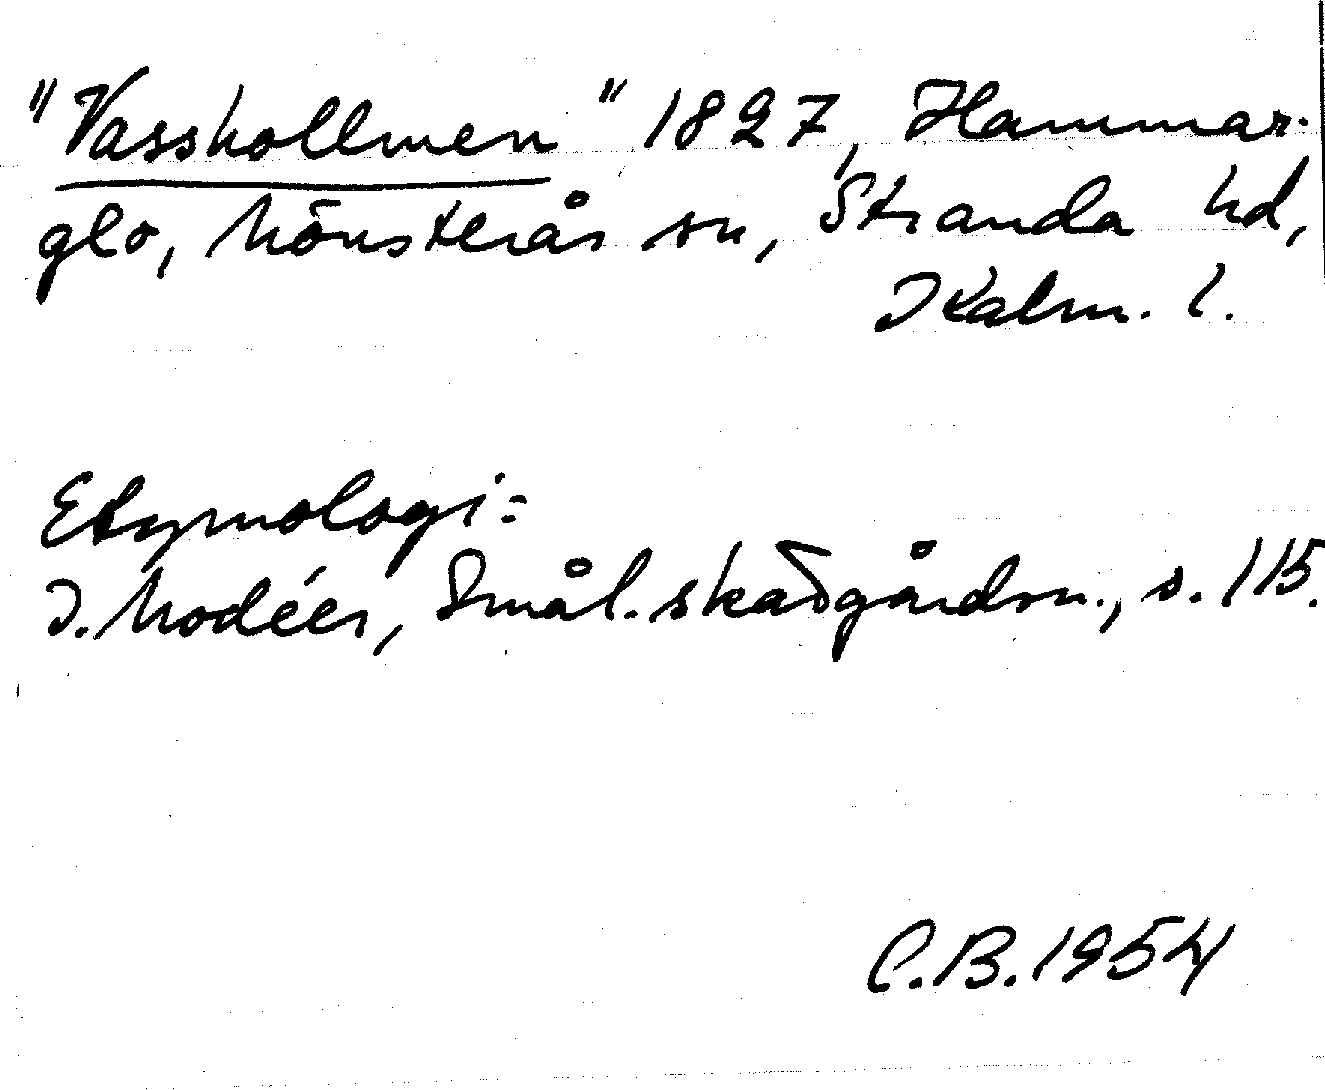 "Vasshollmen" 1827, Hammar-
glo, Mönsterås sn, Stranda hd,
Kalm. l.
Etymologi:
I. Modéer, Smål. skärgårdsn., s. 115.
C.B. 1954